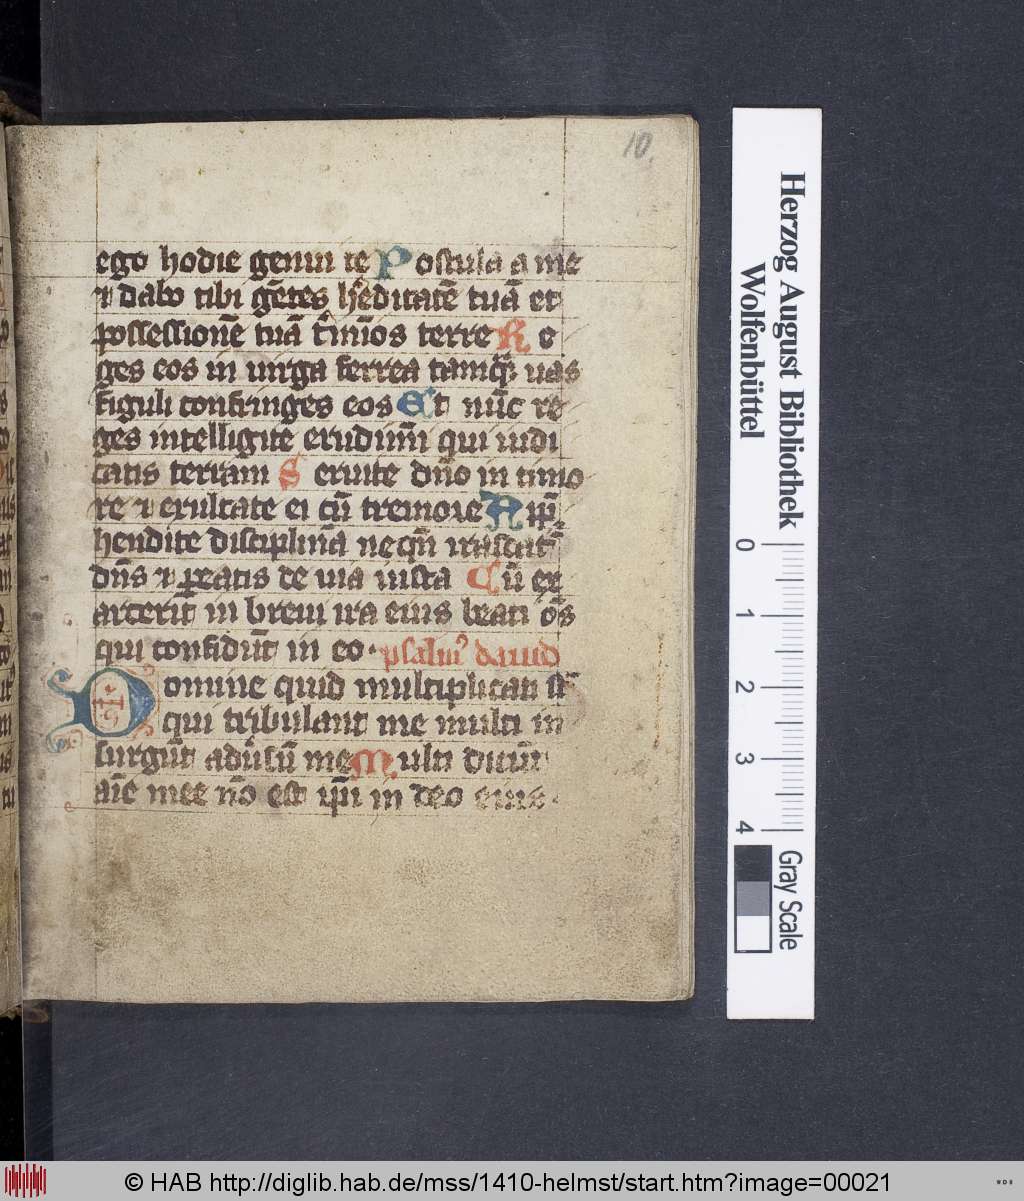 10.
ego hodie genui te Postula a me
⁊ dabo tibi gētes h̓editatē tuā et
possessionē tuā t̄minos terre Re
ges eos in uirga ferrea tamqͣ uas
figuli confringes eos Et nūc re
ges intelligite erudimī qui iudi
catis terram Seruite dn̄o in timo
re ⁊ exultate ei cū tremore Aꝑp̄
hendite disciplinā nequn̄ irascat᷑
dn̄s ⁊ ꝑeatis de uia iusta Cū ex
arcerit̄ in breui ira eius beati om̄s
qui confidūt in eo · psalmꝰ dauid
Domine quid multiplicati st̄
qui tribulant me multi in
surgūt adu̓sū me Multi dicūt
aīe mee nō est ip̄i in deo eius ·
Herzog August Bibliothek
Wolfenbüttel
0 1 2 3 4
Gray Scale
© HAB http://diglib.hab.de/mss/1410-helmst/start.htm?image=00021